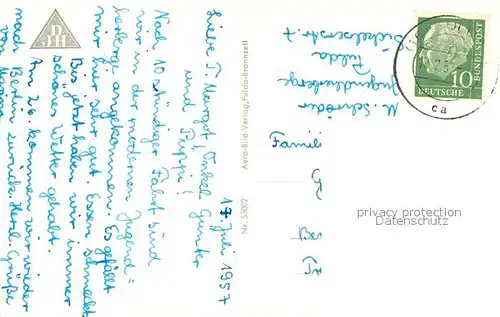 DJH
17. Juli 1957
Liebe T. Margot, Onkel Günter
und Püppi!
Nach 10 stündiger Fahrt sind
wir in der modernen Jugend=
herberge angekommen. Es gefällt
mir hier sehr gut. Essen schmeckt.
Bis jetzt haben wir immer
schönes Wetter gehabt.
Am 26. kommen wir wieder
nach Berlin zurück. Herzl. Grüße
von
Aero-Bild-Verlag, Fulda-Bronnzell
Nr. 53002
M. Schröder
Jugendherberge
Fulda
10
DEUTSCHE
BUNDESPOST
ca
Famili
G
Ber
Tr
privacy protection
Datenschutz